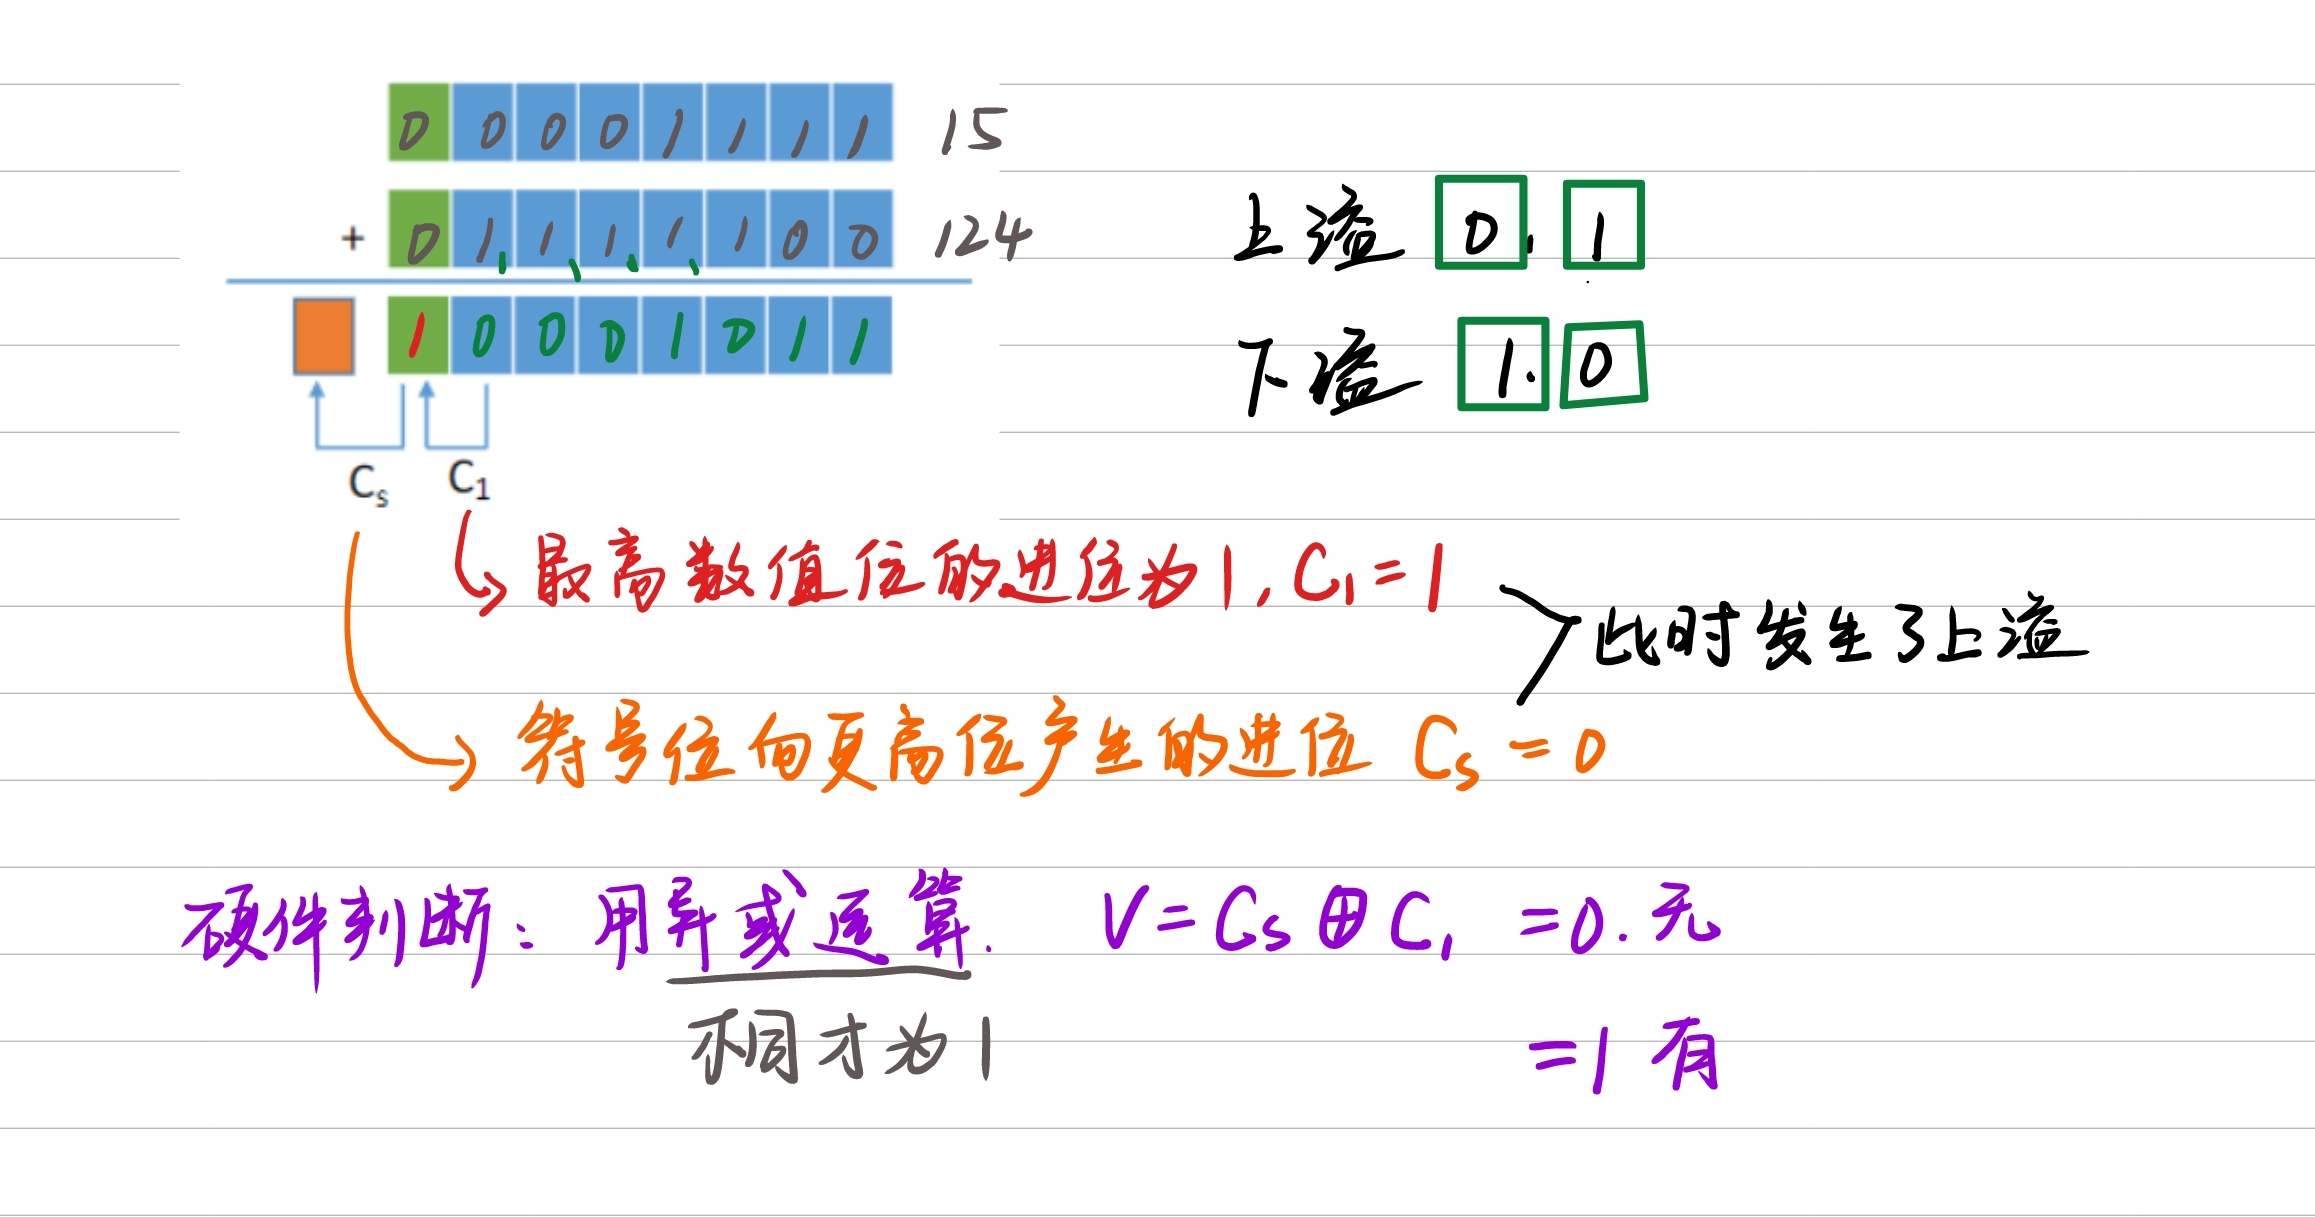 0 0 0 0 1 1 1 1 15
+ 0 1 1 1 1 1 0 0 124
1 0 0 0 1 0 1 1
Cs C1
上溢 0, 1
下溢 1. 0
最高数值位的进位为1, C1=1
此时发生了上溢
符号位向更高位产生的进位 Cs=0
硬件判断: 用异或运算. V=Cs⊕C1 =0.无
不同才为1 =1 有